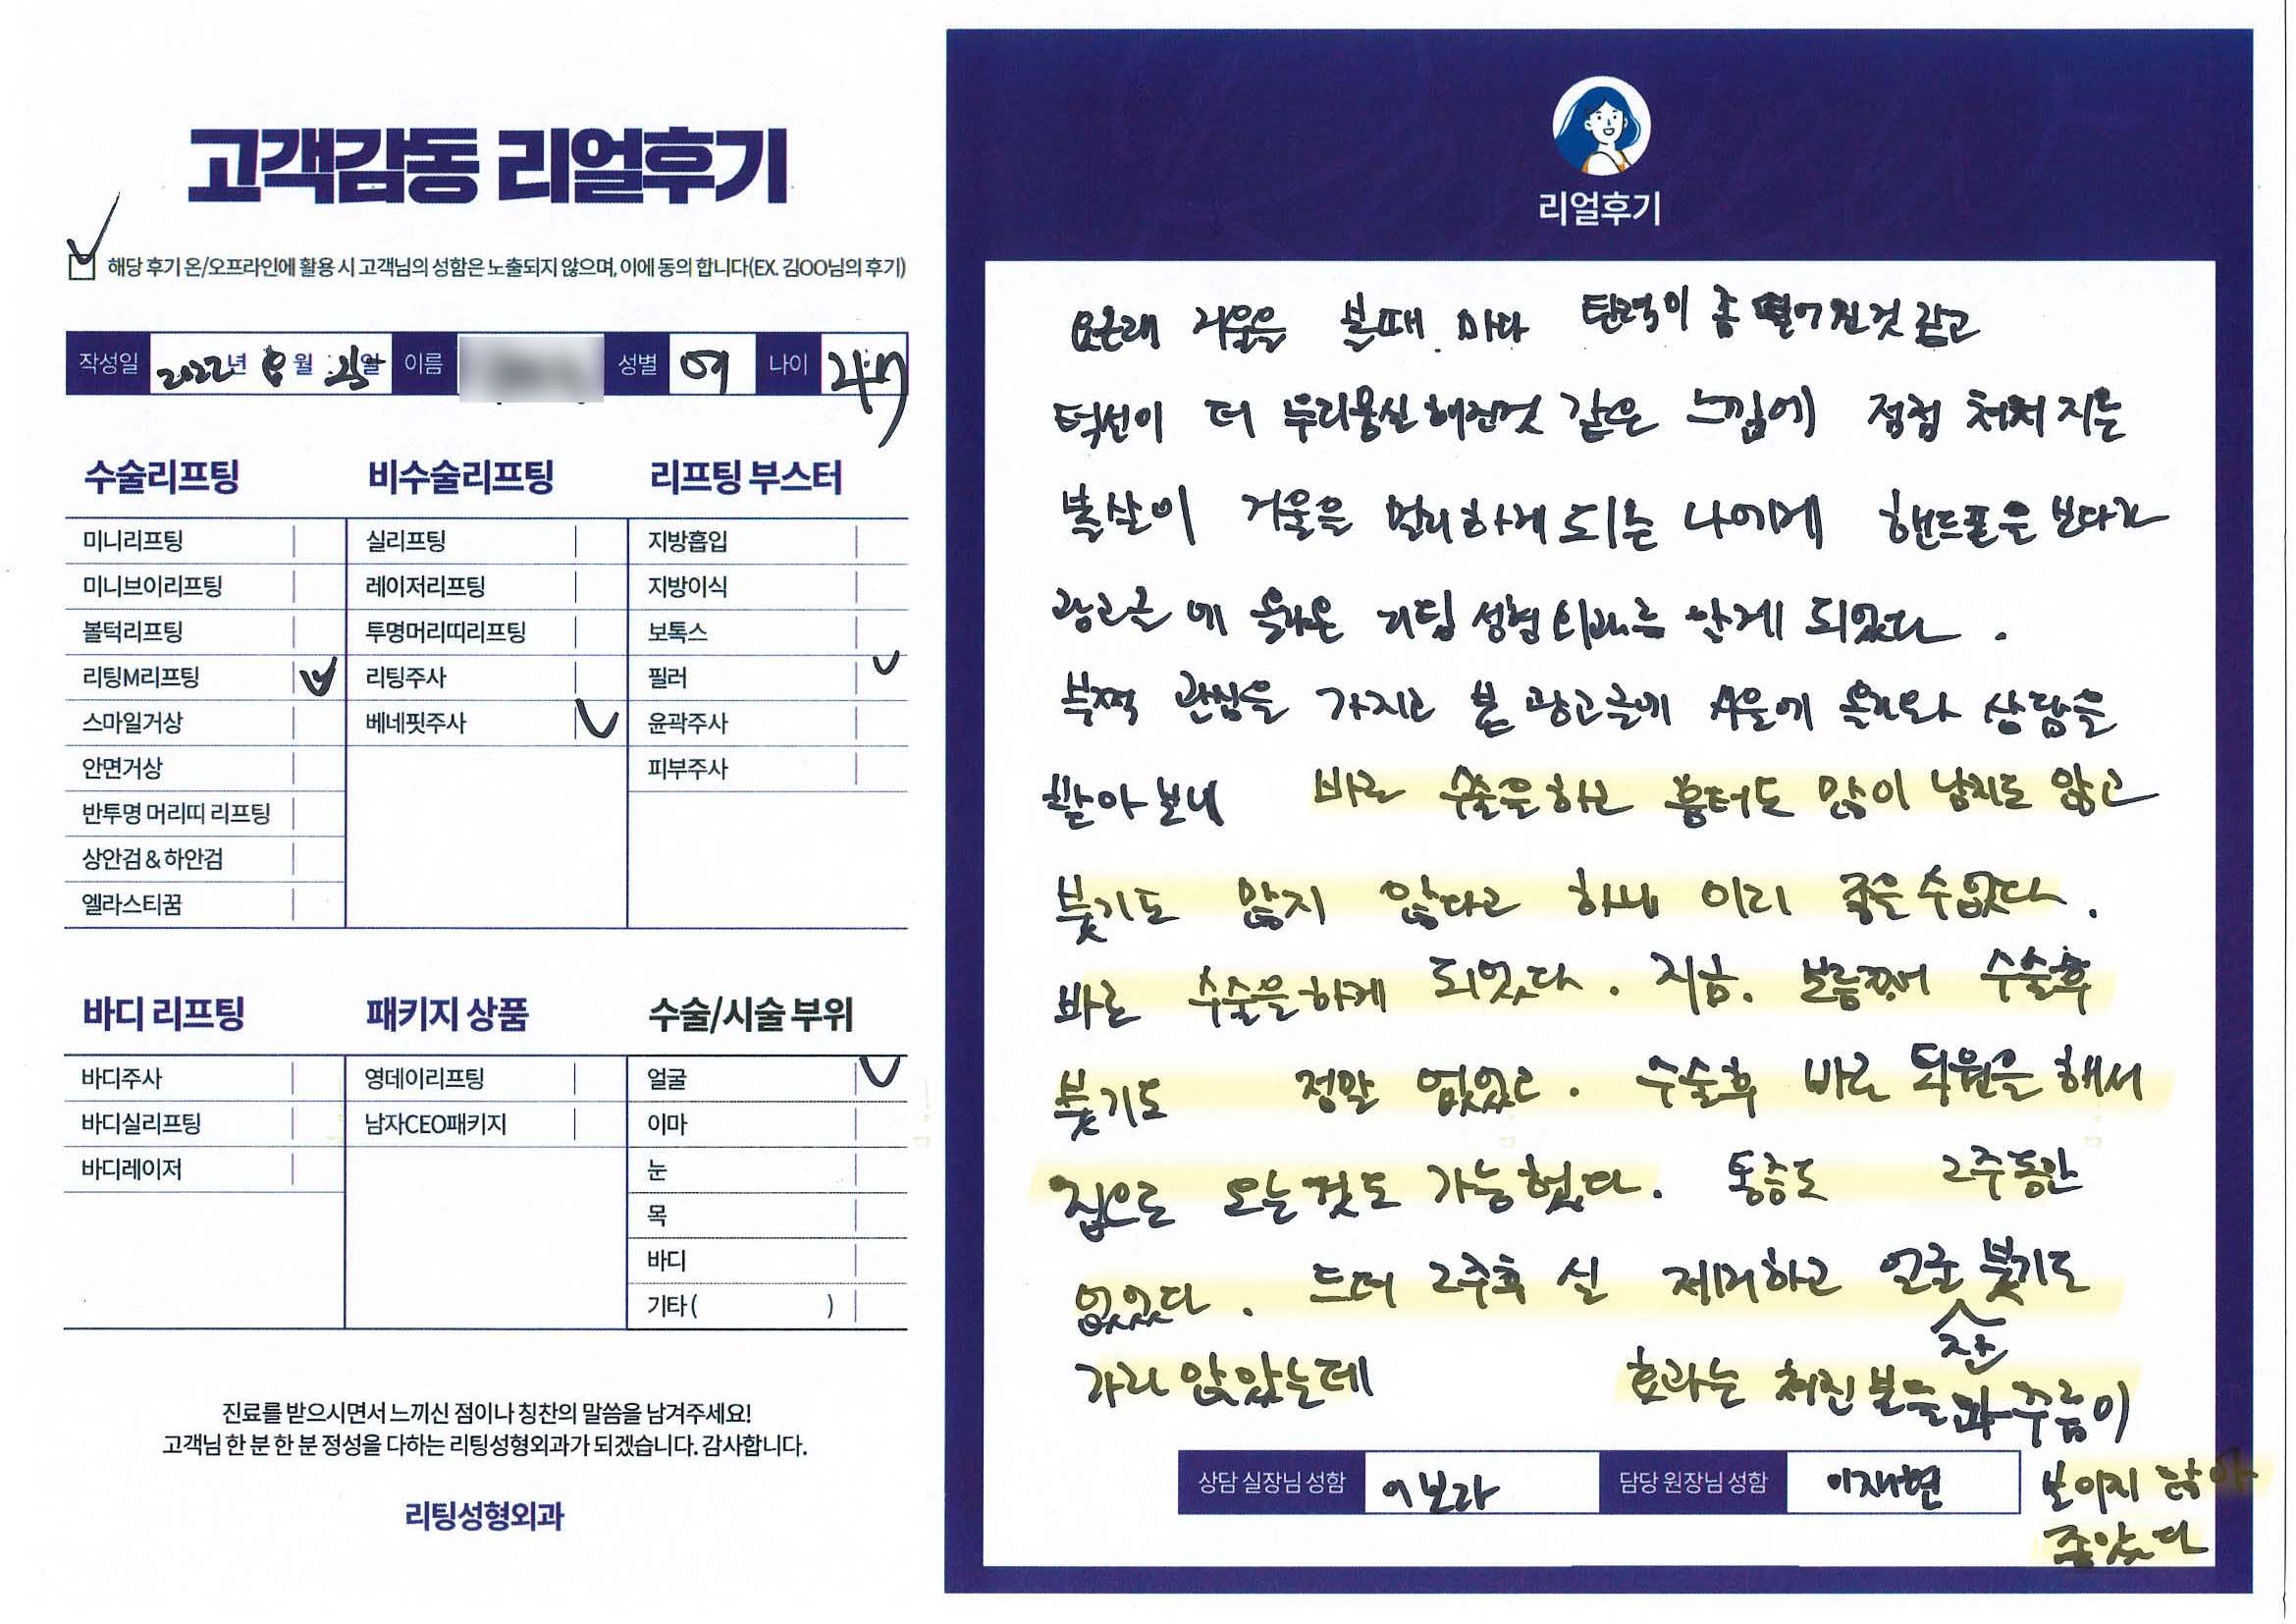 고객감동 리얼후기
해당 후기 온/오프라인에 활용 시 고객님의 성함은 노출되지 않으며, 이에 동의 합니다(EX. 김OO님의 후기)
작성일 2022년 8월 25일 이름 성별 여 나이
수술리프팅
미니리프팅
미니브이리프팅
볼턱리프팅
리팅M리프팅
스마일거상
안면거상
반투명 머리띠 리프팅
상안검 & 하안검
엘라스티꿈
비수술리프팅
실리프팅
레이저리프팅
투명머리띠리프팅
리팅주사
베네핏주사
리프팅 부스터
지방흡입
지방이식
보톡스
필러
윤곽주사
피부주사
바디 리프팅
바디주사
바디실리프팅
바디레이저
패키지 상품
영데이리프팅
남자CEO패키지
수술/시술 부위
얼굴
이마
눈
목
바디
기타( )
진료를 받으시면서 느끼신 점이나 칭찬의 말씀을 남겨주세요!
고객님 한 분 한 분 정성을 다하는 리팅성형외과가 되겠습니다. 감사합니다.
리팅성형외과
리얼후기
요근래 거울을 볼때 마다 탄력이 좀 떨어진것 같고
턱선이 더 두리뭉실해진것 같은 느낌에 점점 처져 지는
볼살이 거울을 멀리하게 되는 나에게 핸드폰을 보다가
광고글에 올라온 리팅성형외과를 알게 되었다.
부쩍 관심을 가지고 본 광고글에 서울에 올라와 상담을
받아보니 바로 수술을하고 흉터도 많이 남지도 않고
붓기도 많지 않다고 하니 이리 좋은수없다.
바로 수술을하게 되었다. 지금. 보름째 수술후
붓기도 정말 없었고. 수술후 바로 퇴원을 해서
집으로 오는것도 가능했다. 통증도 2주동안
없었다. 드뎌 2주후 실 제거하고 얼굴 붓기도
가라 앉았는데 효과는 처진볼들과 잔주름이
보이지 않아
좋았다
상담 실장님 성함 이보라 담당 원장님 성함 이재현